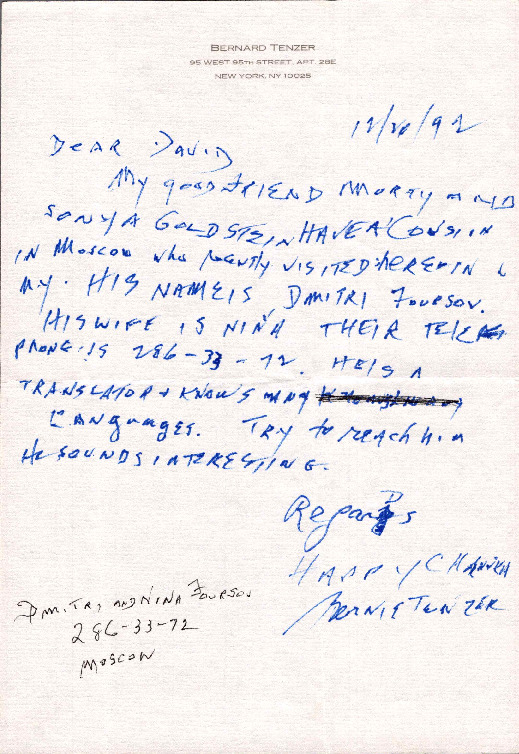 BERNARD TENZER
95 WEST 95TH STREET, APT. 28E
NEW YORK, NY 10025
12/20/92
DEAR DAVID
My good FRIEND MORTY AND
SONYA GOLDSTEIN HAVE A COUSIN
IN MOSCOW who recently VISITED HERE IN
NY. HIS NAME IS DMITRI FOURSOV.
HIS WIFE IS NINA THEIR TELE
PHONE IS 286-33-72. HE IS A
TRANSLATOR + KNOWS MANY
LANguAges. TRY to reach him
He SOUNDS INTERESTING.
RegarDs
HAPPY CHANUKA
BERNIE TENZER
DMITRI AND NINA FOURSOV
286-33-72
MOSCOW